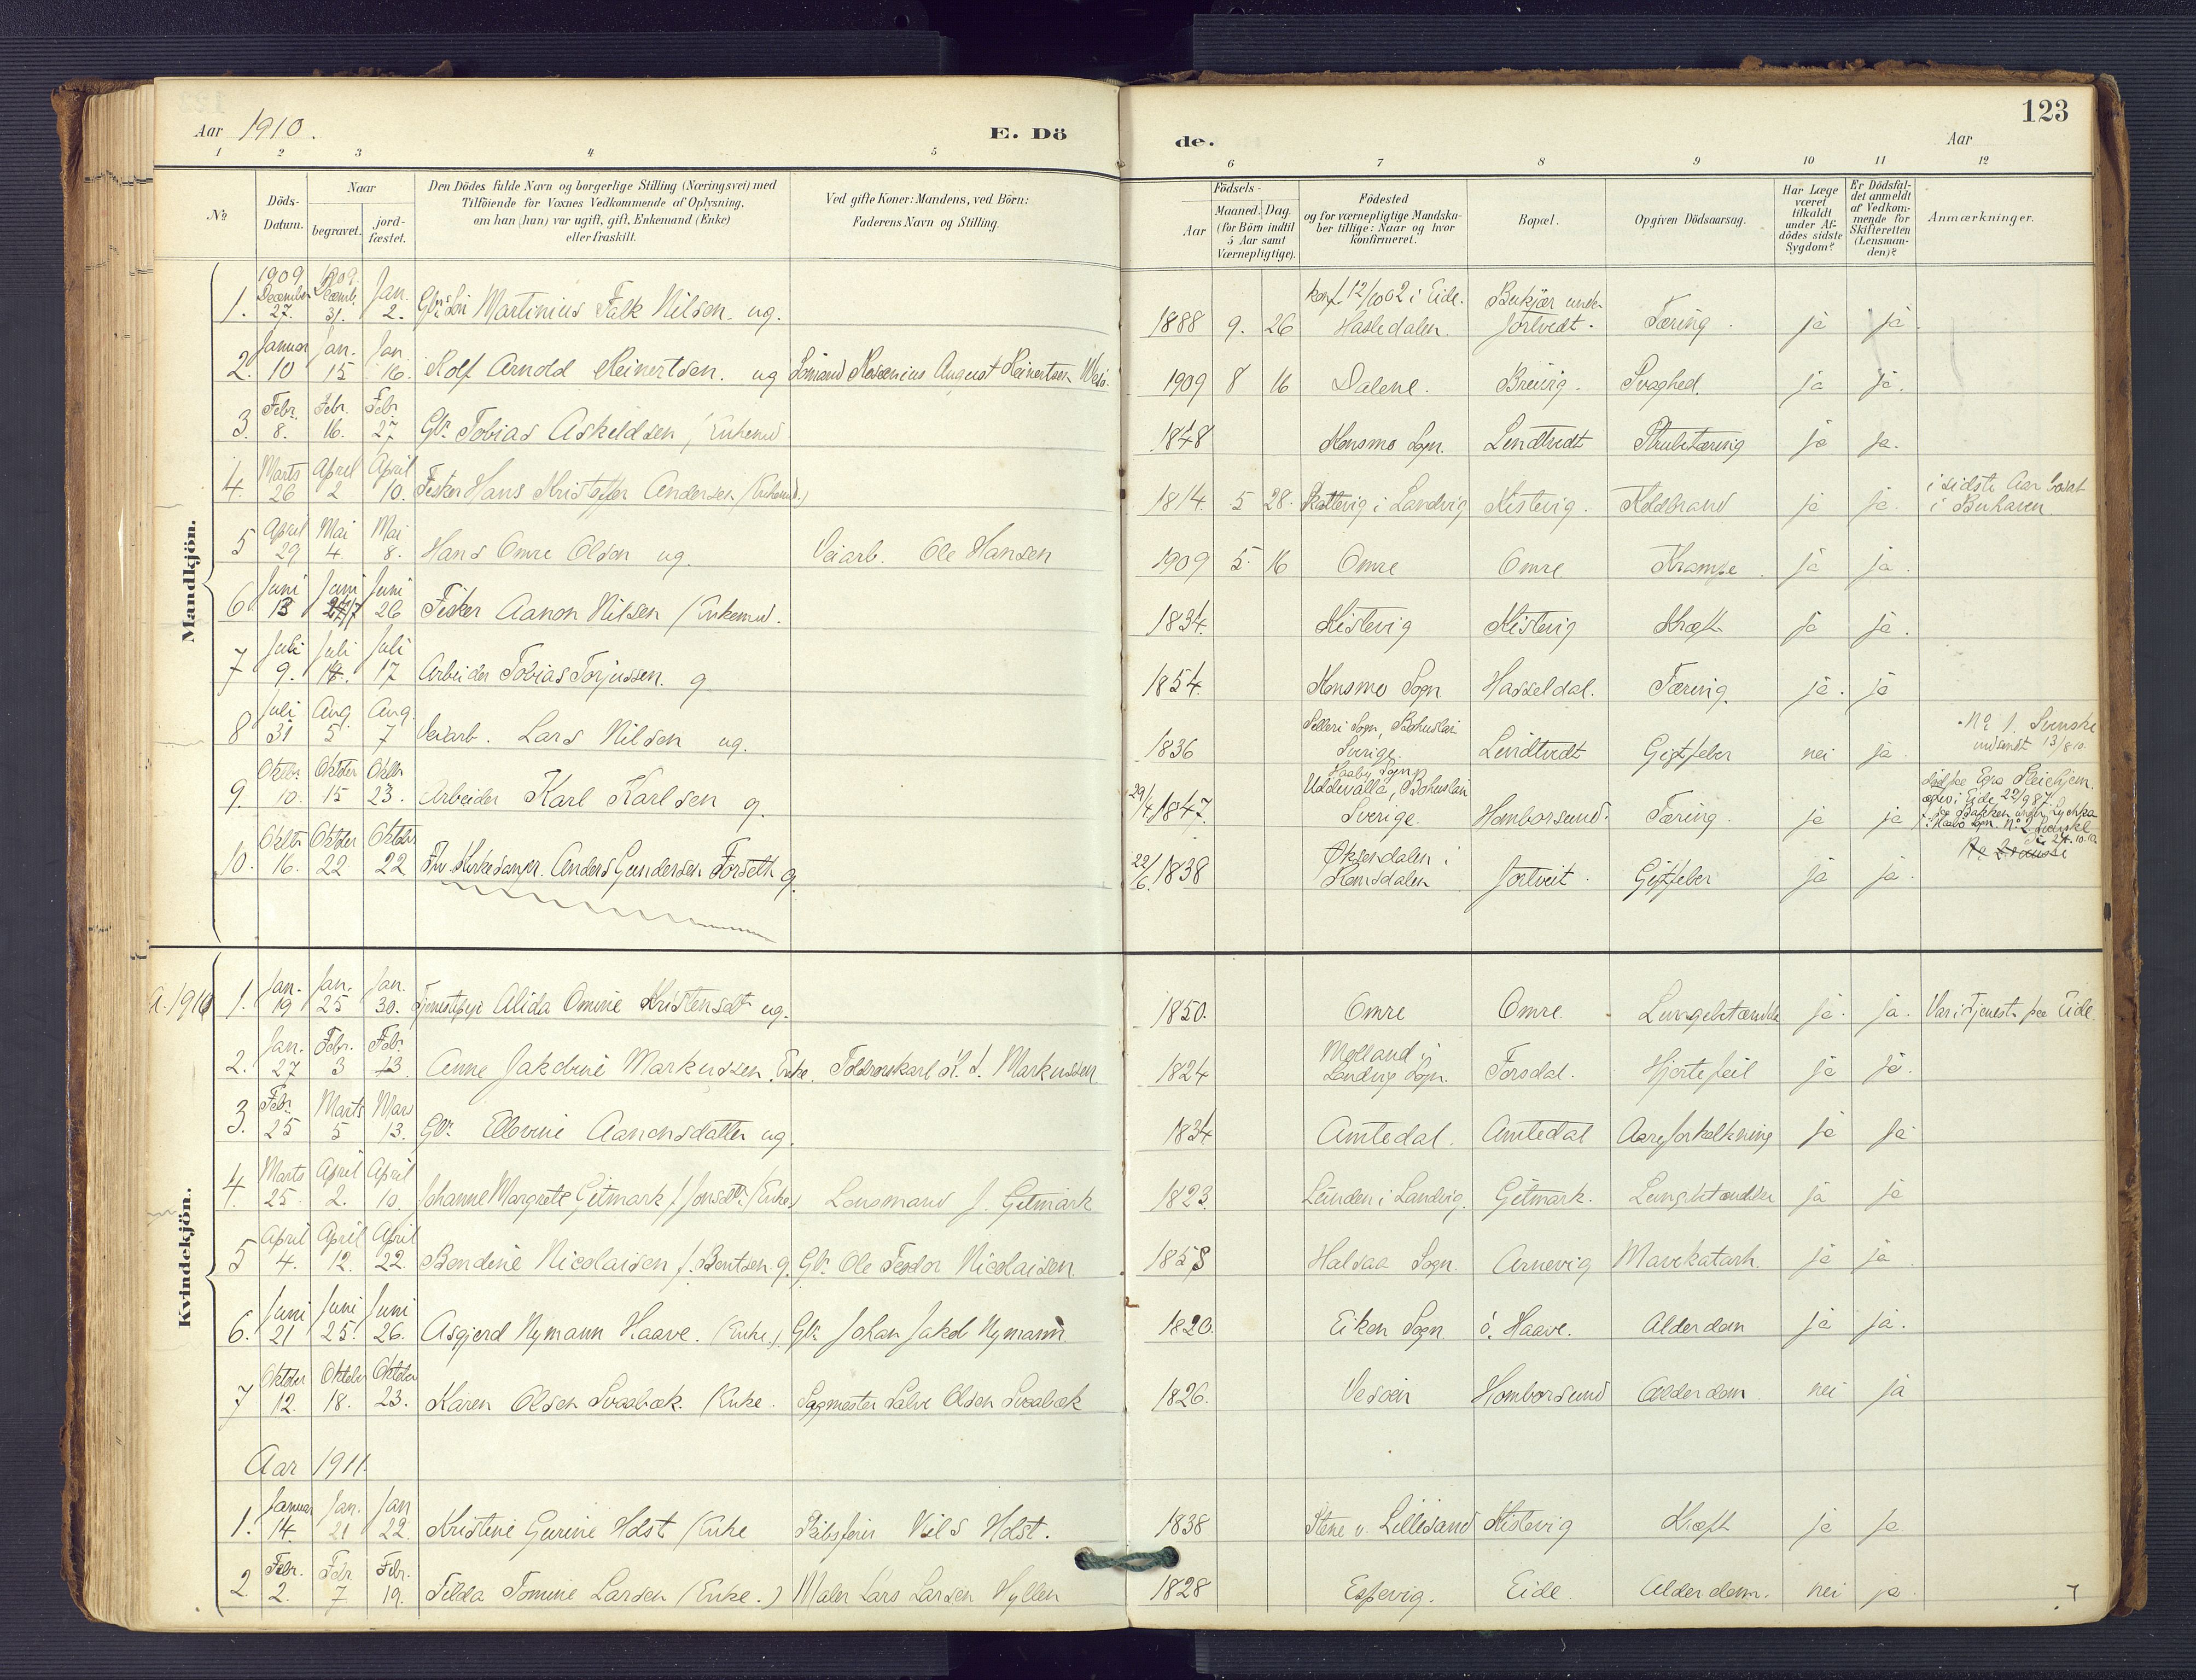 123
Aar 1910.
E. Dö
de.
Aar
1 2 3 4 5 6 7 8 9 10 11 12
No
Döds-Datum.
Naar begravet.
jordfæstet.
Den Dödes fulde Navn og borgerlige Stilling (Næringsvei) med
Tilföiende for Voxnes Vedkommende af Oplysning,
om han (hun) var ugift, gift, Enkemand (Enke)
eller fraskilt.
Ved gifte Koner: Mandens, ved Börn:
Faderens Navn og Stilling.
Födsels-
Aar
Maaned. Dag.
(for Börn indtil 5 Aar samt Værnepligtige).
Födested
og for værnepligtige Mandskaber tillige: Naar og hvor konfirmeret.
Bopæl.
Opgiven Dödsaarsag.
Har Læge været tilkaldt under Afdödes sidste Sygdom?
Er Dödsfaldet anmeldt af Vedkommende for Skifteretten (Lensmanden)?
Anmærkninger.
Mandkjön.
1. 1909 December 27. 1909 Decemb. 31. Jan. 2. Martinius Falk Nilsen. ug. 1888 9. 26 konf. 12/10 02 i Eide. Hasledalen. Tæring. ja ja.
2. Januar 10 Jan. 15 Jan. 16. Rolf Arnold Reinertsen. ug August Reinertsen 1909 8 16 Dalene. Breivig. Svaghed. ja ja.
3. Febr. 8. Febr. 16. Febr. 27 Gbr. Tobias Askeldsen, (Enkemd 1848 Konsmo Sogn. Lendtvedt Strubetæring ja ja.
4. Marts 26 April 2 April 10. Fisker Hans Kristoffer Andersen (Enkemd.) 1814. 5 28. i Landvig Kistevig. Koldbrand ja ja. i sidste Aar bosat i
5 April 29 Mai 4 Mai 8. Hans Omre Olsen ug. Veiarb. Ole Hansen 1909 5. 16 Omre Omre Krampe ja ja.
6 Juni 13 Juni Juni 26 Fisker Aanon Nilsen (Enkemd. 1834. Kistevig Kistevig Kræft ja ja.
7 Juli 9. Juli Juli 17 Arbeider Tobias Torjussen. g 1854. Konsmo Sogn Hasseldal. Tæring. ja. ja
8 Juli 31 Aug. 5 Aug. 7 Veiarb. Lars Nilsen ug. 1836 Sogn, Bohuslän Sverige. Lendtvedt Gigtfeber nei ja. No 1. Svenske indsendt 13/8 10.
9. Oktbr. 10. Oktober 15 Oktbr. 23. Arbeider Karl Karlsen g. 29/4 1847. Sogn, Uddevalla, Bohuslän Sverige. Homborsund. Tæring. ja ja
10. Oktbr. 16. Oktober 22 Oktober 22 Fhv. Kirkesanger. Anders Gundersen Forseth g. 22/6. 1838 Øksendalen i Romsdalen Jortveit. Gigtfeber ja ja.
Kvindekjön.
A. 1910
1. Jan. 19 Jan. 25 Jan. 30. Alida Omine Kristensdt ug. 1850. Omre Omre Lungebetændelse ja. ja. Var i Tjeneste paa Eide
2. Jan. 27 Febr. 3 Febr. 13 Anne Jakobine Markussen. Enke. Markussen 1824 Molland i Landvig Sogn. Forsdal. Hjertefeil ja ja.
3. Febr. 25 Marts 5 Mars 13. Gbr. Ellevine Aanonsdatter ug. 1834 Amtedal. Amtedal Aareforkalkning ja ja
4. Marts 25. April 2. April 10. Johanne Margrete Gitmark f. Jonsdtr. (Enke) Lensmand J. Gitmark 1823. i Landvig. Gitmark. Lungebetændelse ja ja
5 April 4. April 12. April 22. Bendine Nicolaisen f. Bentsen. g. Gbr. Ole Teodor Nicolaisen 1858 Halsaa Sogn. Arnevig Mavekatarh. ja ja
6. Juni 21 Juni 25. Juni 26. Asgjerd Nymann Haave. (Enke.) Gbr. Johan Jakob Nymann 1820. Eiken Sogn ö. Haave. Alderdom ja ja.
7 Oktober 12. Oktober 18. Oktober 23. Karen Olsen Svaabæk. (Enke. Sagmester Salve Olsen Svaabæk 1826. Vesöen Homborsund Alderdom nei ja
Aar 1911.
1. Januar 14. Jan. 21 Jan 22. Kristine Gurine Holst (Enke Skibsfører Nils Holst. 1838 Stene v. Lillesand Kistevig Kræft ja ja.
2 Febr. 2. Febr 7 Febr. 19. Tilda Tomine Larsen (Enke.) Maler Lars Larsen Hyllen 1828 Espevig. Eide. Alderdom. nei ja.